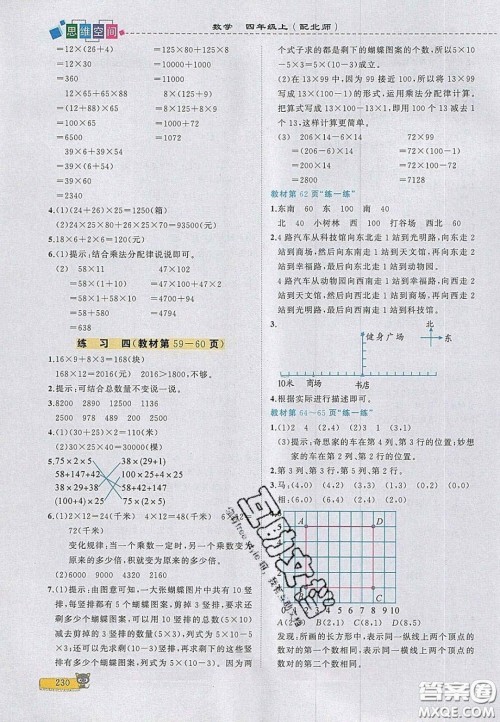 思维空间
数学 四年级上（配北师）
=12×(25×4)
=12×100
=1200
=125×80+125×8
=10000+1000
=11000
(62+38)×65
=100×65
=6500
8×(125+9)
=8×125+8×9
=1072
39×6+39×54
=39×(6+54)
=39×60
=2340
4.(1)(24+26)×25=1250(箱)
(2)24×25+26×25×75=93500(千克)
5.18×6+2×6=120(元)
6.(1)提示：结合乘法分配律说说即可。
(2) 58×11
=58×10+58
=580+58
=638
47×101
=4700+47
=4747
练 习 四(教材第59—60页)
1.16×9+8×3=168(块)
168×12=2016(块) 2016>1800，不够。
2.提示：可结合总数量不变说一说。
3.8200 2890 12500 1136
2500 978 4500 2900
4.(1)(30+25)×2=110(千米)
(2)30×25×40=30000(棵)
5.75×2×5 38×(29+1)
58+147+42 (58+42)+147
38×29+38 (100+4)×25
(100+4)×25 75×(2×5)
6.(1)2×12=24(千米) 4×12=48(千米)
6×12=72(千米)
变化规律：当一个乘数一定时，另一个乘数变为原来的多少倍，积就变为原来的多少倍。
(2)6000 9000 4320 2160
7.(1)提示：由图意可知，一大张蝴蝶图片中共有10竖排，每竖排有5个蝴蝶图案，剪掉3竖排，要求还剩多少个蝴蝶图案，可以先用总数(5×10)减去剪掉的3竖排的数量(5×3)，也可以先求剪掉3竖排后剩余的竖排(10-3)，再求剩下的这些竖排有多少个蝴蝶图案，列式为5×(10-3)。因为两
个式子求的都是剩下的蝴蝶图案的个数，所以5×10-5×3=5×(10-3)。
(2)提示：因为100个13减去1个13是99个13，所以将13×100-13×1的形式，运用乘法分配律计算。把算式写成13×100-13×1，即用100个13减去1个13，这样计算更简单。
(3) 206×14-6×14
=(206-6)×14
=200×14
=2800
72×99
=72×(100-1)
=72×100-72
=7128
教材第62页“练一练”
1.东南 60 东 100 南 40
北 40 小树林 西 100 打谷场 西 北 60
2.4路汽车从科技馆向东北走1站到光明路，向东走2站到幸福街，再向东南走1站到天文馆，再向东走1站到电影院，再向东北走1站到动物园。
4路汽车从动物园向西南走1站到电影院，向西走1站到天文馆，再向西北走1站到幸福街，再向西走2站到光明路，再向西南走1站到科技馆。
3.
北
东
健身广场
10米
商场
书店
4.根据实际进行描述即可。
教材第64~65页“练一练”
1.(1)(2,4) (2)
(3)提示：奇思家的车在第4列、第1行的位置；妙想家的车在第2列、第3行的位置。
2.第3列、第1行。第3列、第2行。
3.马(4,4) (1,3)
4.(1)
A
D
C
0 1 2 3 4 5 6 7 8 9 10
(2)A(2,8)
发现：所画的长方形中，表示同一横线上两个顶点的数对的第二个数相同，表示同一竖线上两个顶点的数对的第一个数相同。
230
答案圈
MXQE.COM